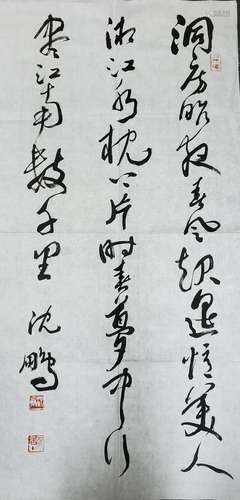 洞房昨夜春风起遥憶美人
湘江水枕上片時春夢中行
盡江南數千里 沈鵬